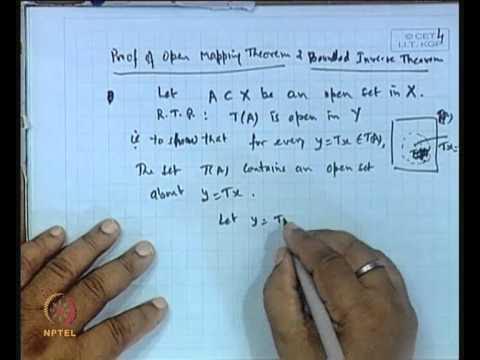 © CET
I.I.T. KGP
4
Proof of Open Mapping Theorem & Bounded Inverse Theorem
Let A ⊂ X be an open set in X.
R.T.P. : T(A) is open in Y
ie to show that for every y = Tx ∈ T(A),
The set T(A) contains an open set
about y = Tx.
Let y = T
T(A)
Tx=
NPTEL